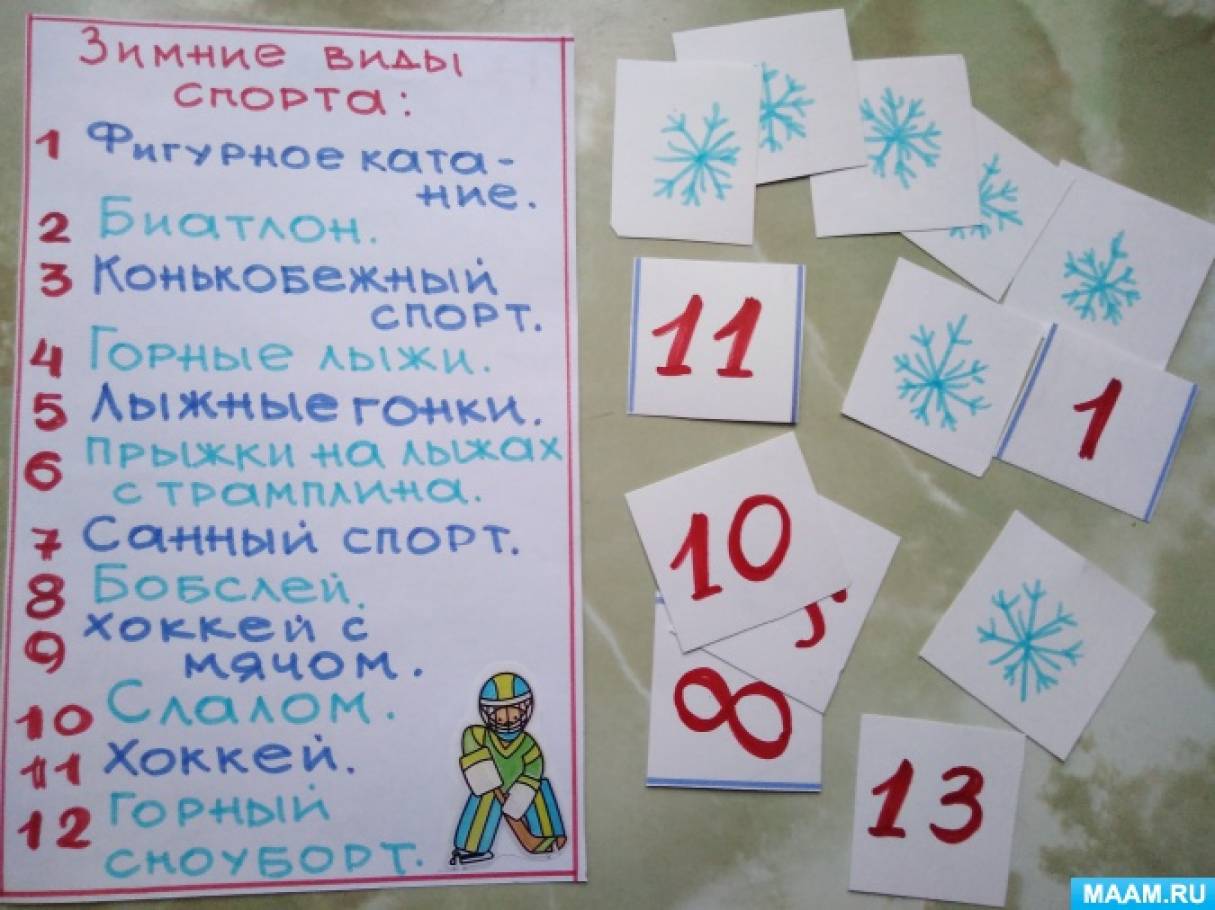 Зимние виды
спорта:
1 Фигурное ката-
ние.
2 Биатлон.
3 Конькобежный
спорт.
4 Горные лыжи.
5 Лыжные гонки.
6 Прыжки на лыжах
с трамплина.
7 Санный спорт.
8 Бобслей.
9 Хоккей с
мячом.
10 Слалом.
11 Хоккей.
12 Горный
сноуборт.
11
1
10
8
13
MAAM.RU